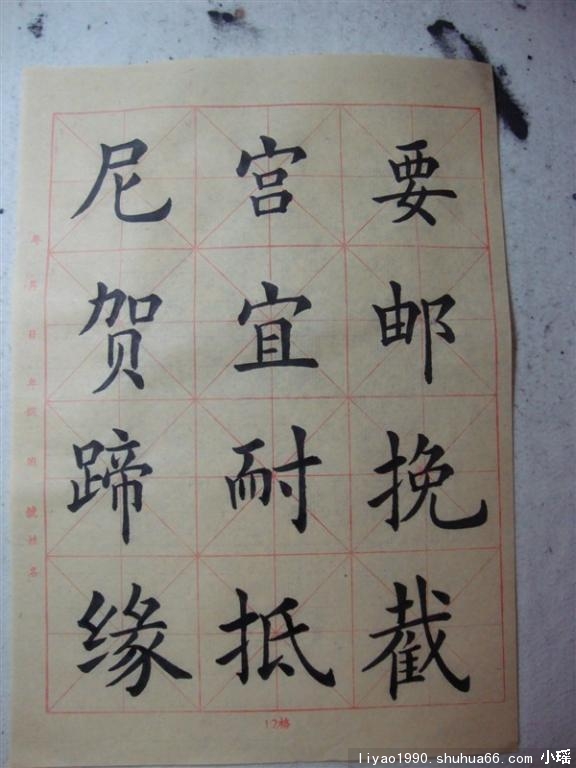 要邮挽截
宫宜耐抵
尼贺蹄缘
年月日年级班
号姓名
12格
liyao1990.shuhua66.com 小瑶